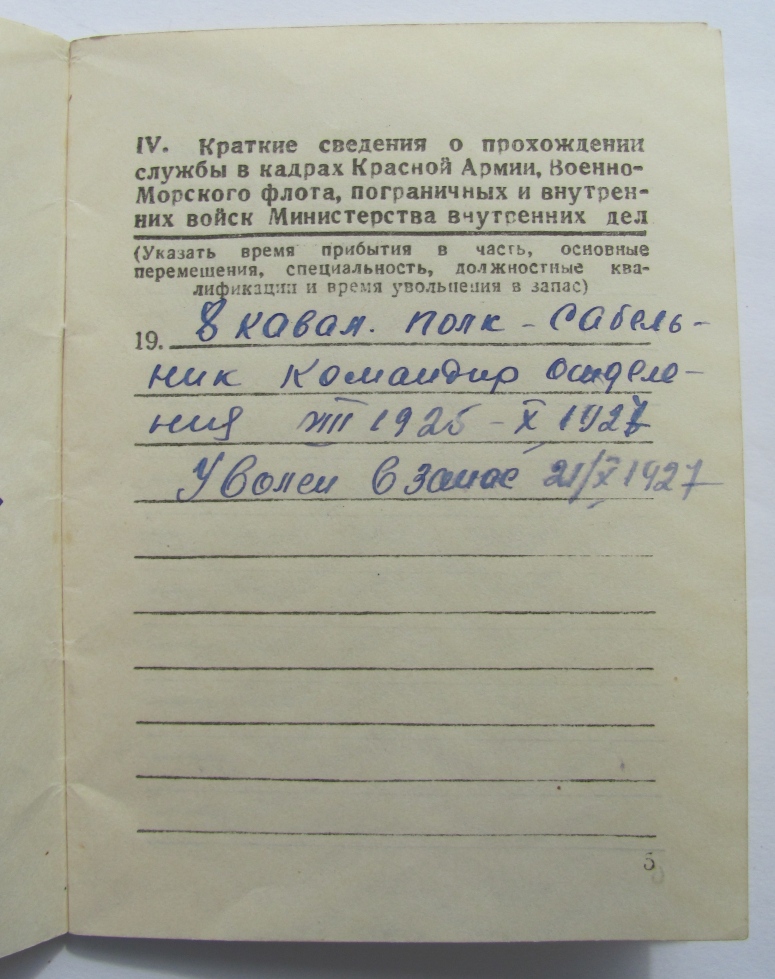 IV. Краткие сведения о прохождении
службы в кадрах Красной Армии, Военно-
Морского флота, пограничных и внутрен-
них войск Министерства внутренних дел
(Указать время прибытия в часть, основные
перемещения, специальность, должностные ква-
лификации и время увольнения в запас)
19. 8 кавал. полк - сабель-
ник командир отделе-
ния 1925 - X 1927
Уволен в запас 21/X 1927
5